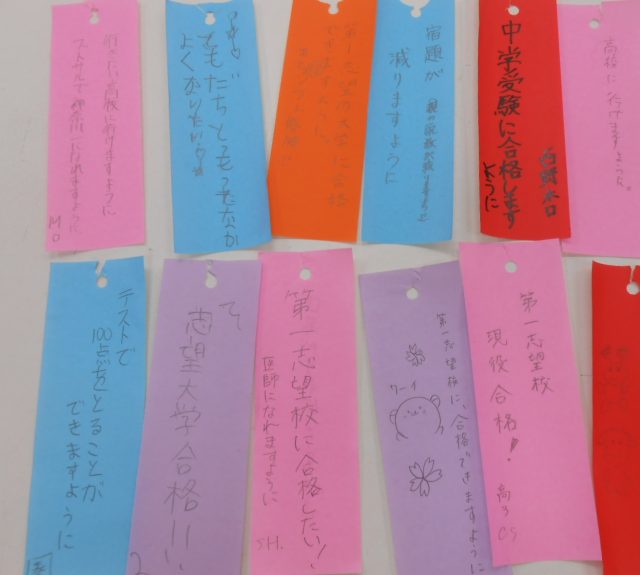 行きたい高校に行けますように
フットサルで神奈川一になれますように。
M O
ともだちともっとなか
よくなりたいな
第1志望の大学に合格
できますように。
宿題が
減りますように
中学受験に合格します
ように
高校に行けますように。
テストで
100点をとることが
できますように
志望大学合格!!
第一志望校に合格したい!
医師になれますように
S.H.
第一志望校に、合格できますように
ワーイ
第一志望校
現役合格!
高3 CS